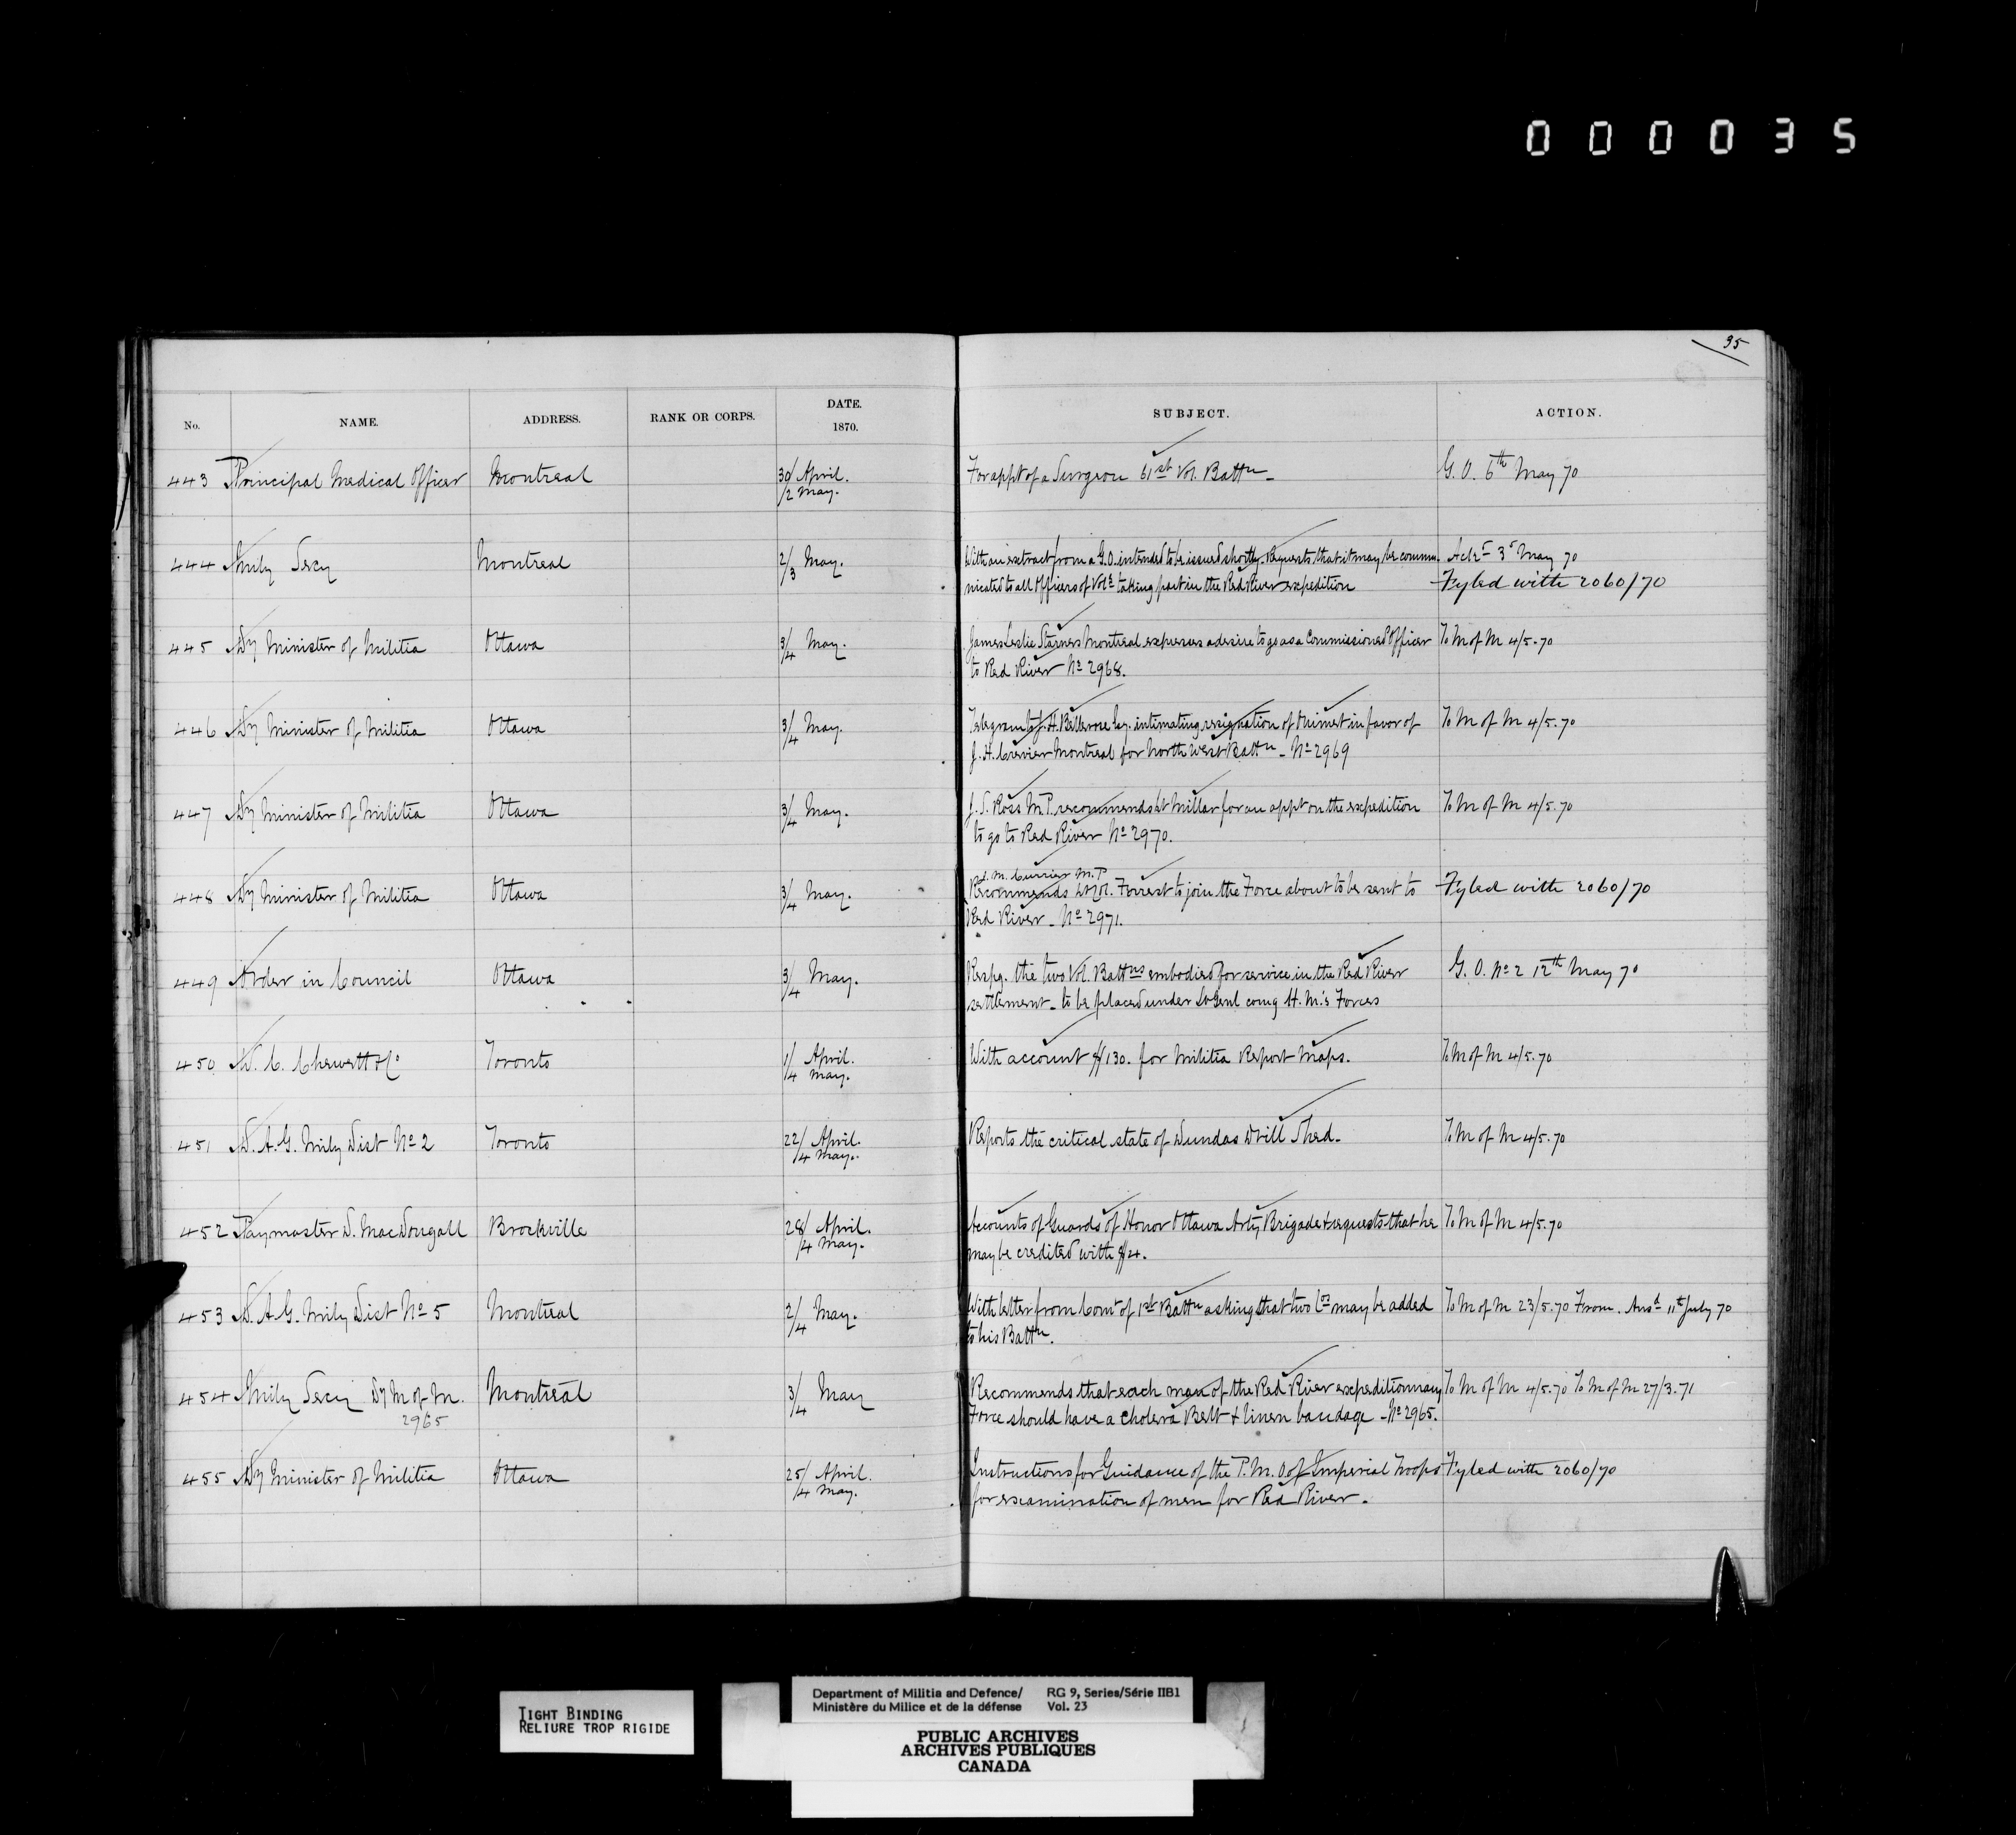 000035
35
No. NAME. ADDRESS. RANK OR CORPS. DATE. 1870. SUBJECT. ACTION.
443 Principal Medical Officer Montreal 30/ April. For appt of a Surgeon 61st Vol. Battn - G. O. 6th May 70
/2 May.
444 Mily Secy Montreal 2/3 May. With an extract from a G.O. intended to be issued shortly. Requests that it may be commu- Ack 3 May 70
nicated to all Officers of Vols taking part in the Red River expedition Fyled with 2060/70
445 Dy Minister of Militia Ottawa 3/4 May. James Leslie Montreal expresses a desire to go as a Commissioned Officer To M of M 4/5.70
to Red River No 2968.
446 Dy Minister of Militia Ottawa 3/4 May. Telegram to J. H. Bellerose Esq. intimating resignation of in favor of To M of M 4/5.70
J. H. Crevier Montreal for North West Battn - No 2969
447 Dy Minister of Militia Ottawa 3/4 May. J. S. Ross M.P. recommends Lt Millar for an appt on the expedition To M of M 4/5.70
to go to Red River No 2970.
J. M. Currier M.P.
448 Dy Minister of Militia Ottawa 3/4 May. Recommends Lt Col. Forrest to join the Force about to be sent to Fyled with 2060/70
Red River - No 2971.
449 Order in Council Ottawa 3/4 May. Respg. the two Vol. Battns embodied for service in the Red River G. O. No 2 12th May 70
settlement - to be placed under Lt Genl comg H. M.'s Forces
450 W. C. Chewett & Co Toronto 1/ April. With account $130. for Militia Report Maps. To M of M 4/5.70
/4 May.
451 D. A. G. Mily Dist No 2 Toronto 22/ April. Reports the critical state of Dundas Drill Shed. To M of M 4/5.70
/4 May.
452 Paymaster D. MacDougall Brockville 28/ April. Accounts of Guards of Honor Ottawa Arty Brigade & requests that he To M of M 4/5.70
/4 May. may be credited with $4.
453 D. A. G. Mily Dist No 5 Montreal 2/4 May. With letter from Comt of 1st Battn asking that two Cos may be added To M of M 23/5.70 From. Ansd 11th July 70
to his Battn.
454 Mily Secy Dy M of M. Montreal 3/4 May Recommends that each man of the Red River expeditionary To M of M 4/5.70 To M of M 27/3.71
2965 Force should have a cholera Belt & linen bandage - No 2965.
455 Dy Minister of Militia Ottawa 25/ April. Instructions for Guidance of the P. M. O of Imperial Troops Fyled with 2060/70
/4 May. for examination of men for Red River.
TIGHT BINDING
RELIURE TROP RIGIDE
Department of Militia and Defence/ RG 9, Series/Série IIB1
Ministère du Milice et de la défense Vol. 23
PUBLIC ARCHIVES
ARCHIVES PUBLIQUES
CANADA